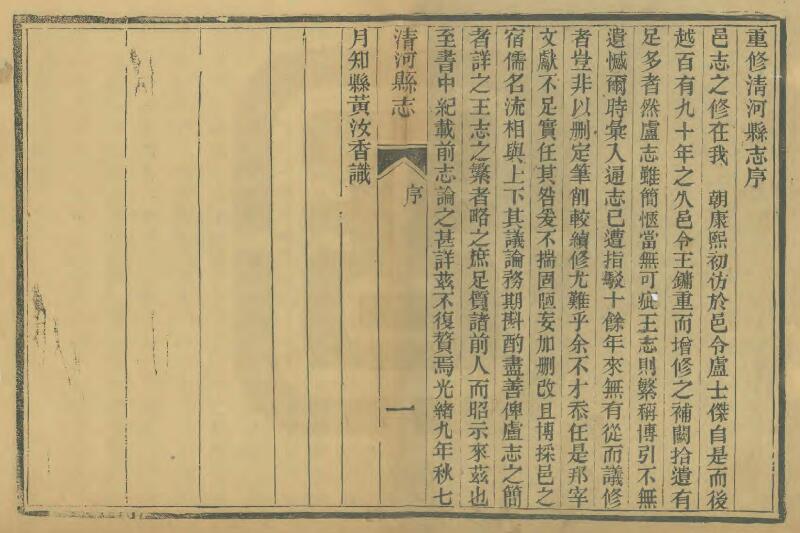 重修淸河縣志序
邑志之修在我　朝康熙初仿於邑令盧士傑自是而後
越百有九十年之久邑令王鏞重而增修之補闕拾遺有
足多者然盧志雖簡愜當無可疵王志則繁稱博引不無
遺憾爾時彙入通志已遭指駁十餘年來無有從而議修
者豈非以删定筆削較續修尤難乎余不才忝任是邦宰
文獻不足實任其咎爰不揣固陋妄加删改且博採邑之
宿儒名流相與上下其議論務期斟酌盡善俾盧志之簡
者詳之王志之繁者略之庶足質諸前人而昭示來茲也
至書中紀載前志論之甚詳茲不復贅焉光緒九年秋七
清河縣志
序
一
月知縣黃汝香識